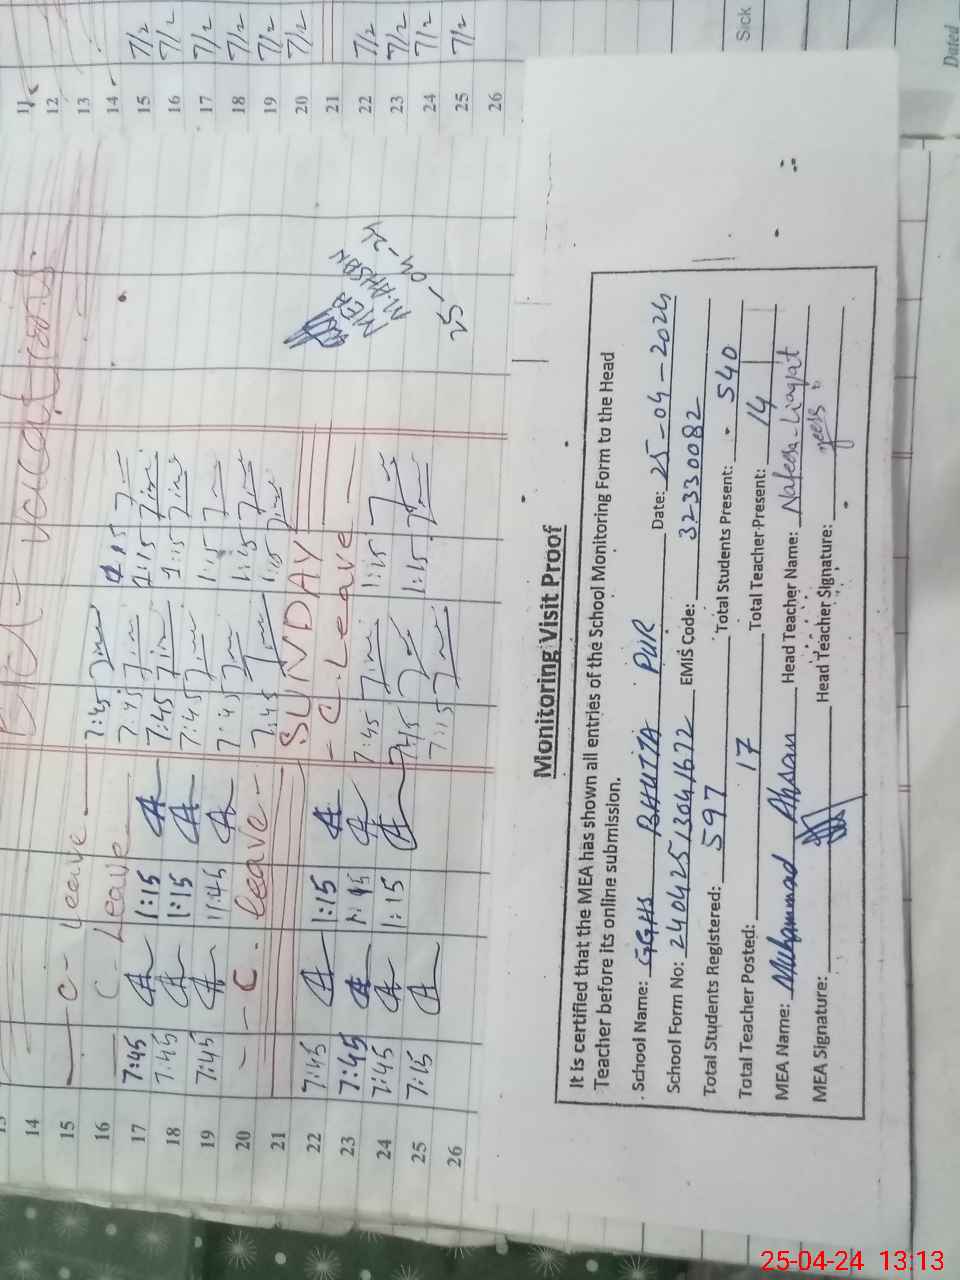 vacations.
14
15 — C - Leave
16 C - Leave 7:45
17 7:45 1:15 7:45 1:15
18 7:45 1:15 7:45 1:15
19 7:45 11:45 7:45 1:15
20 - - C. leave - 7:45 1:15
21 SUNDAY
22 7:45 1:15 - C. Leave —
23 7:45 1:15 7:45 1:15
24 7:45 1:15 7:45 1:15
25 7:15 7:15
26
MEA
M. AHSAN
25-04-24
11
12
13
14
15 7/2
16 7/2
17 7/2
18 7/2
19 7/2
20 7/2
21
22 7/2
23 7/2
24 7/2
25 7/2
26
Sick
Dated
Monitoring Visit Proof
It is certified that the MEA has shown all entries of the School Monitoring Form to the Head
Teacher before its online submission.
School Name: GGHS BHUTTA PUR Date: 25-04-2024
School Form No: 24042513041672 EMIS Code: 32330082
Total Students Registered: 597 Total Students Present: 540
Total Teacher Posted: 17 Total Teacher Present: 14
MEA Name: Muhammad Ahsan Head Teacher Name: Nafeesa Liaqat
MEA Signature: Head Teacher Signature:
25-04-24 13:13